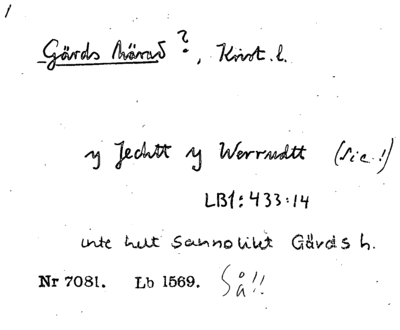 Gärds härad ?, Krist. l.
y Jechtt y Werrudtt (sic!)
LB1:433:14
inte helt sannolikt Gärds h.
Nr 7081. Lb 1569. Så!!